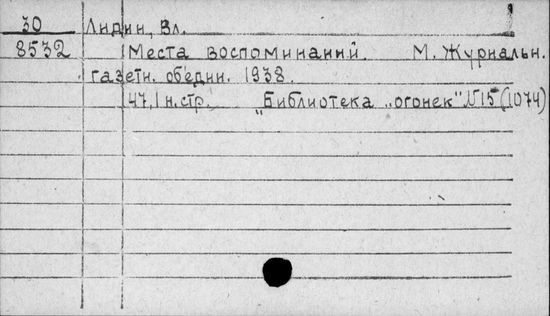 30 Лидин, Вл.
8532 Места воспоминаний. М. Журнальн.
газетн. объедин. 1938.
47,1 н.стр. "Библиотека "огонек" №15 (1074)